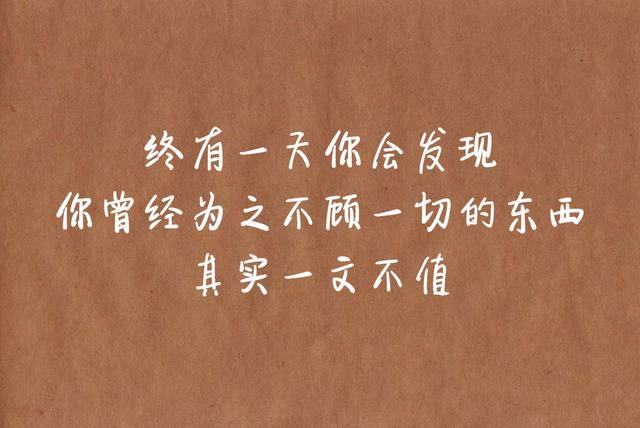 终有一天你会发现
你曾经为之不顾一切的东西
其实一文不值